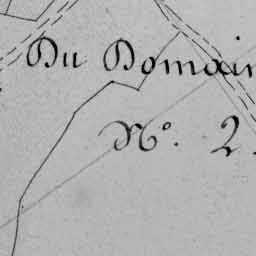 Du Domain
Nº. 2.